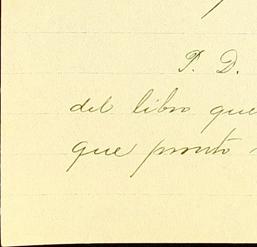 P. D.
del libro que
que pronto